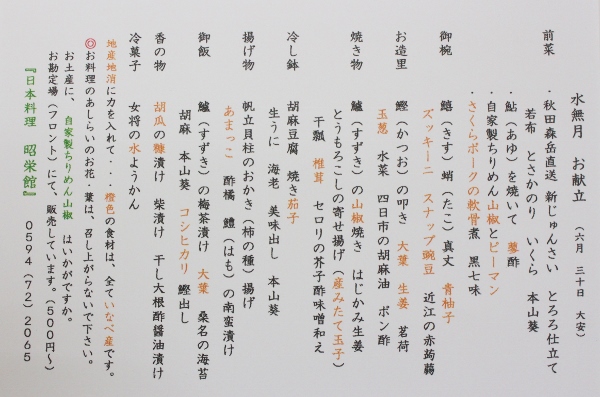 水無月 お献立 (六月 三十日 大安)
前菜 ・秋田森岳直送 新じゅんさい とろろ仕立て
若布 とさかのり いくら 本山葵
・鮎(あゆ)を焼いて 蓼酢
・自家製ちりめん山椒とピーマン
・さくらポークの軟骨煮 黒七味
御椀 鱚(きす)蛸(たこ)真丈 青柚子
ズッキーニ スナップ豌豆 近江の赤蒟蒻
お造里 鰹(かつお)の叩き 大葉 生姜 茗荷
玉葱 水菜 四日市の胡麻油 ポン酢
焼き物 鱸(すずき)の山椒焼き はじかみ生姜
とうもろこしの寄せ揚げ(産みたて玉子)
干瓢 椎茸 セロリの芥子酢味噌和え
冷し鉢 胡麻豆腐 焼き茄子
生うに 海老 美味出し 本山葵
揚げ物 帆立貝柱のおかき(柿の種)揚げ
あまっこ 酢橘 鱧(はも)の南蛮漬け
御飯 鱸(すずき)の梅茶漬け 大葉 桑名の海苔
胡麻 本山葵 コシヒカリ 鰹出し
香の物 胡瓜の糠漬け 柴漬け 干し大根酢醤油漬け
冷菓子 女将の水ようかん
地産地消に力を入れて・・・橙色の食材は、全ていなべ産です。
◎お料理のあしらいのお花・葉は、召し上がらないで下さい。
お土産に、自家製ちりめん山椒 はいかがですか。
お勘定場(フロント)にて、販売しています。(500円～)
『日本料理 昭栄館』 0594(72)2065